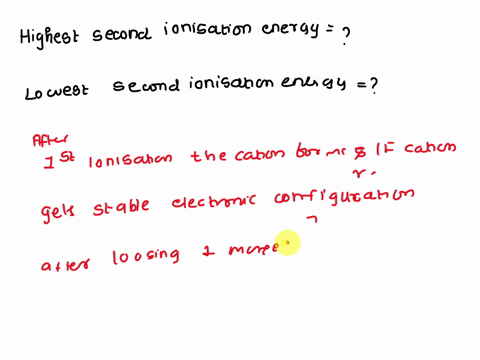 Highest second ionisation energy = ?
Lowest second ionisation energy = ?
After
1st ionisation the cation forms & if cation
gets stable electronic configuration
after loosing 1 more e-